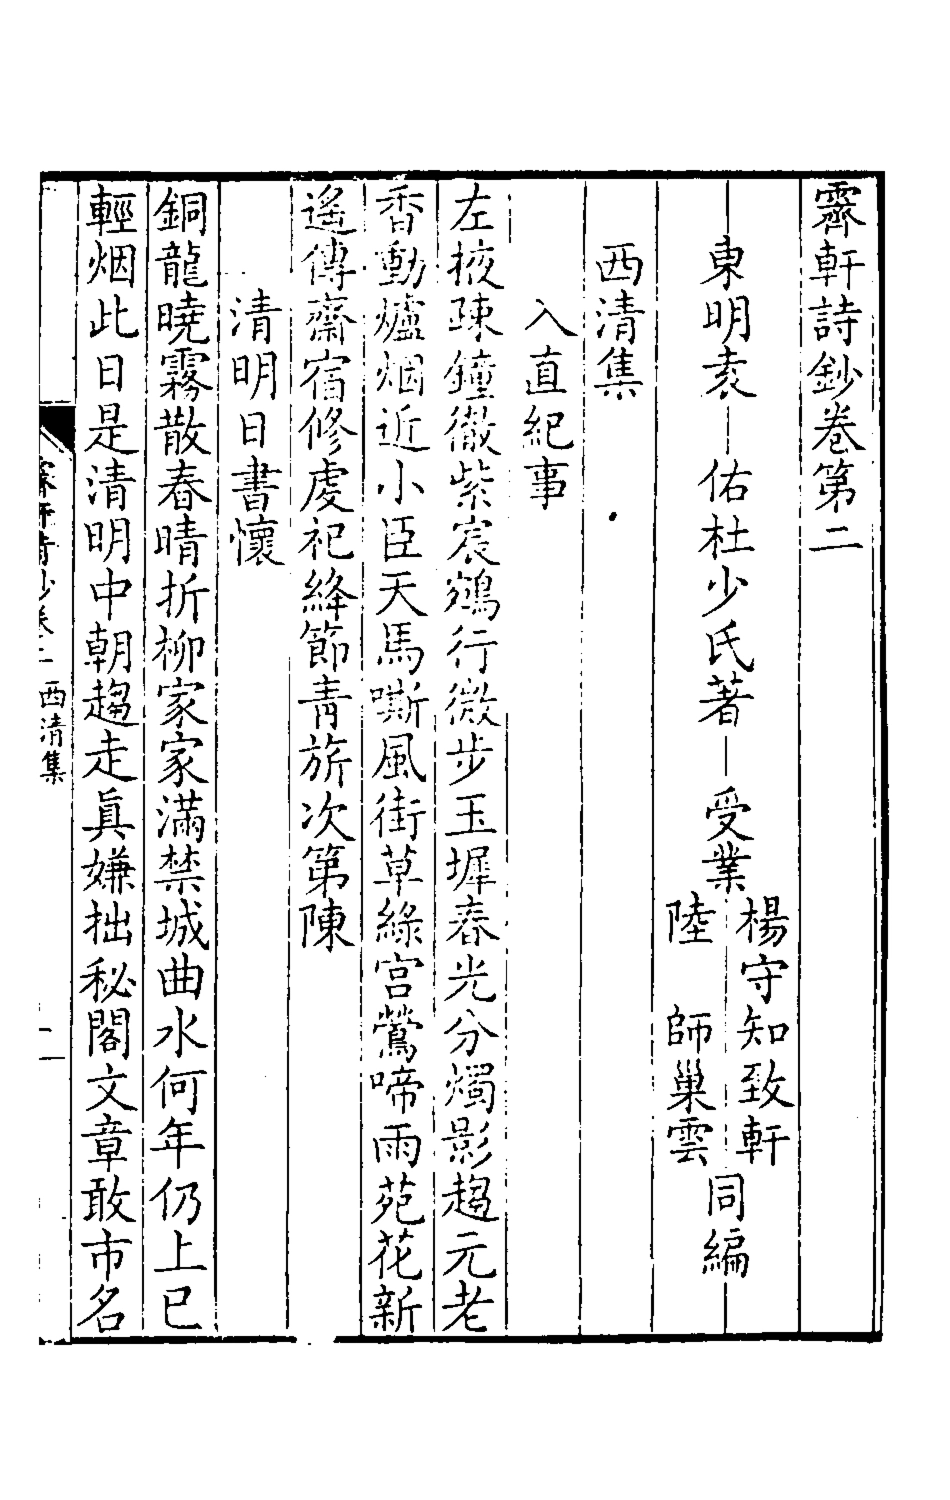 霽軒詩鈔卷第二
東明袁佑杜少氏著
受業
楊守知致軒
陸師巢雲
同編
西清集
入直紀事
左掖疎鐘徹紫宸鵷行微步玉墀春光分燭影趨元老
香動爐烟近小臣天馬嘶風街草綠宫鶯啼雨苑花新
遙傳齋宿修虔祀絳節青旂次第陳
清明日書懷
銅龍曉霧散春晴折柳家家滿禁城曲水何年仍上巳
輕烟此日是清明中朝趨走眞嫌拙秘閣文章敢市名
霽軒詩鈔卷二
西清集
一